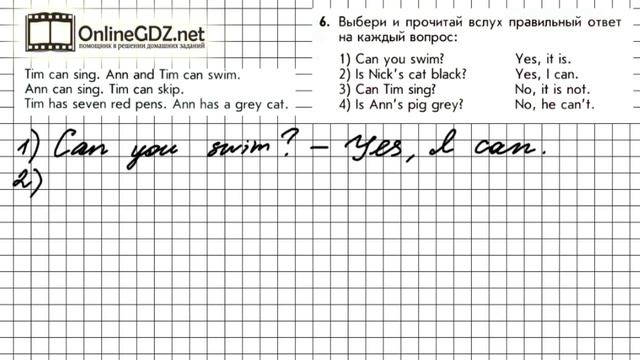 OnlineGDZ.net
помощник в решении домашних заданий
Tim can sing. Ann and Tim can swim.
Ann can sing. Tim can skip.
Tim has seven red pens. Ann has a grey cat.
6. Выбери и прочитай вслух правильный ответ
на каждый вопрос:
1) Can you swim? Yes, it is.
2) Is Nick's cat black? Yes, I can.
3) Can Tim sing? No, it is not.
4) Is Ann's pig grey? No, he can't.
1) Can you swim? – Yes, I can.
2)